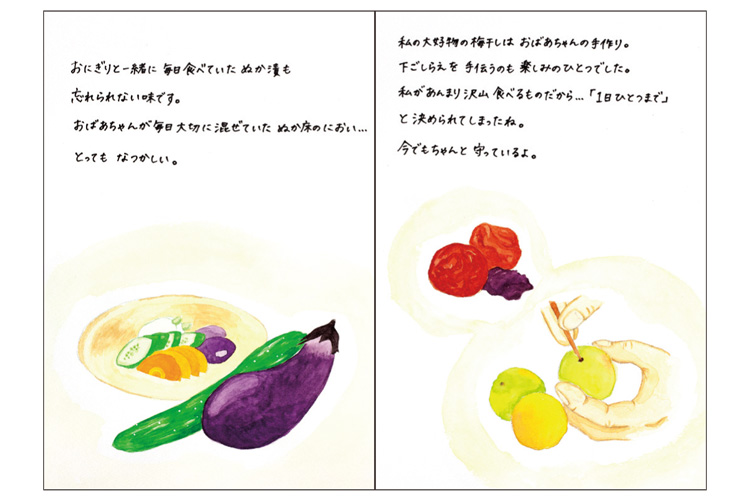 おにぎりと一緒に 毎日食べていた ぬか漬も
忘れられない味です。
おばあちゃんが毎日大切に混ぜていた ぬか床のにおい…
とっても なつかしい。
私の大好物の梅干しは おばあちゃんの手作り。
下ごしらえを 手伝うのも 楽しみのひとつでした。
私があんまり沢山 食べるものだから…「1日ひとつまで」
と決められてしまったね。
今でもちゃんと 守っているよ。